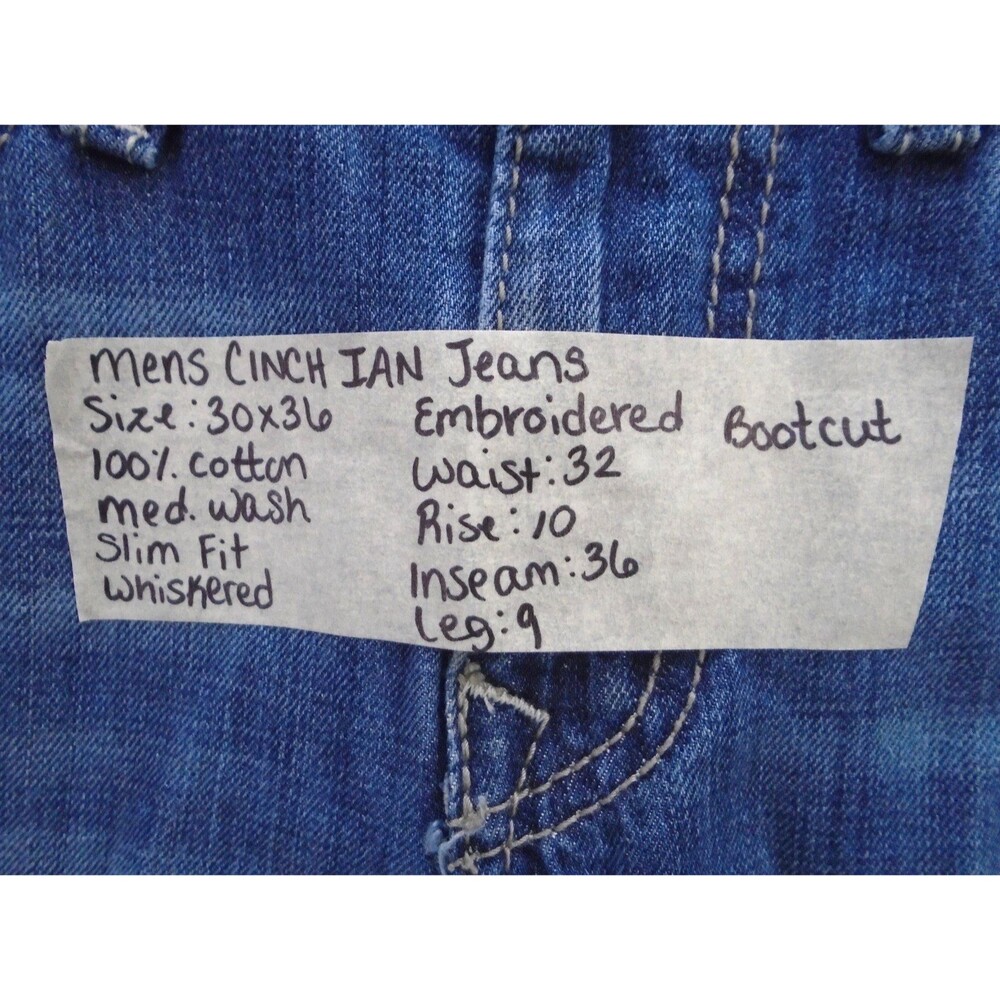 Mens CINCH IAN Jeans
Size: 30x36
100% cotton
med. wash
Slim Fit
Whiskered
Embroidered
Waist: 32
Rise: 10
Inseam: 36
Leg: 9
Bootcut